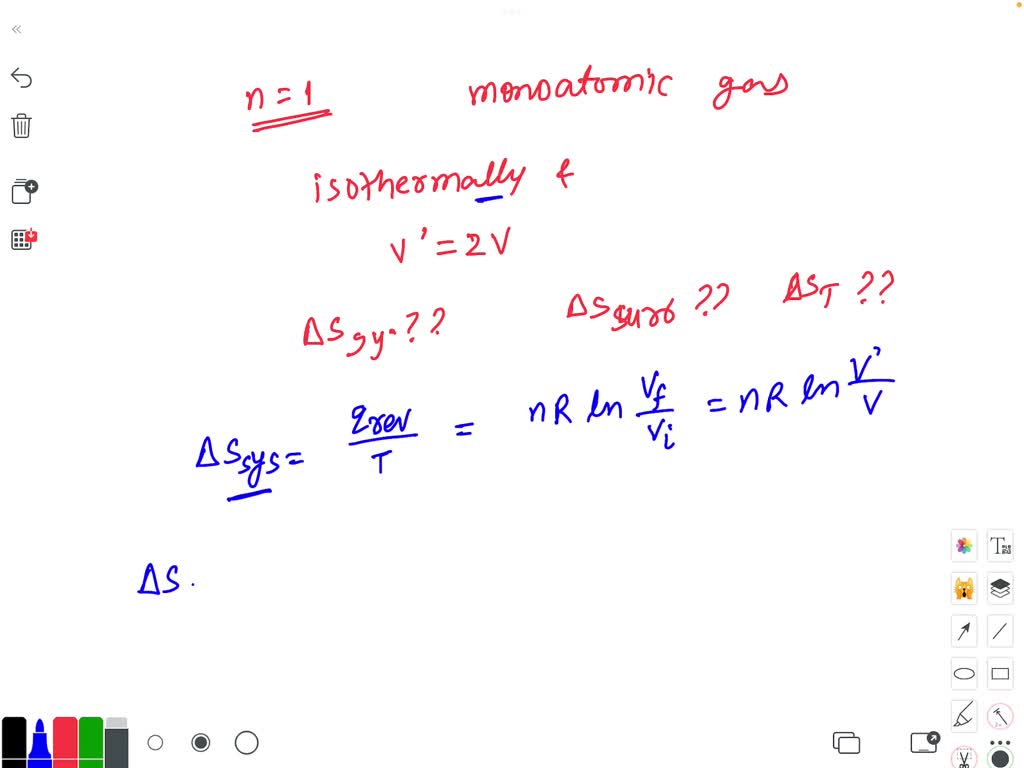 n = 1 monoatomic gas
isothermally &
V' = 2V
ΔS sy. ?? ΔS surr ?? ΔS T ??
ΔS sys = q rev / T = nR ln Vf / Vi = nR ln V' / V
ΔS .